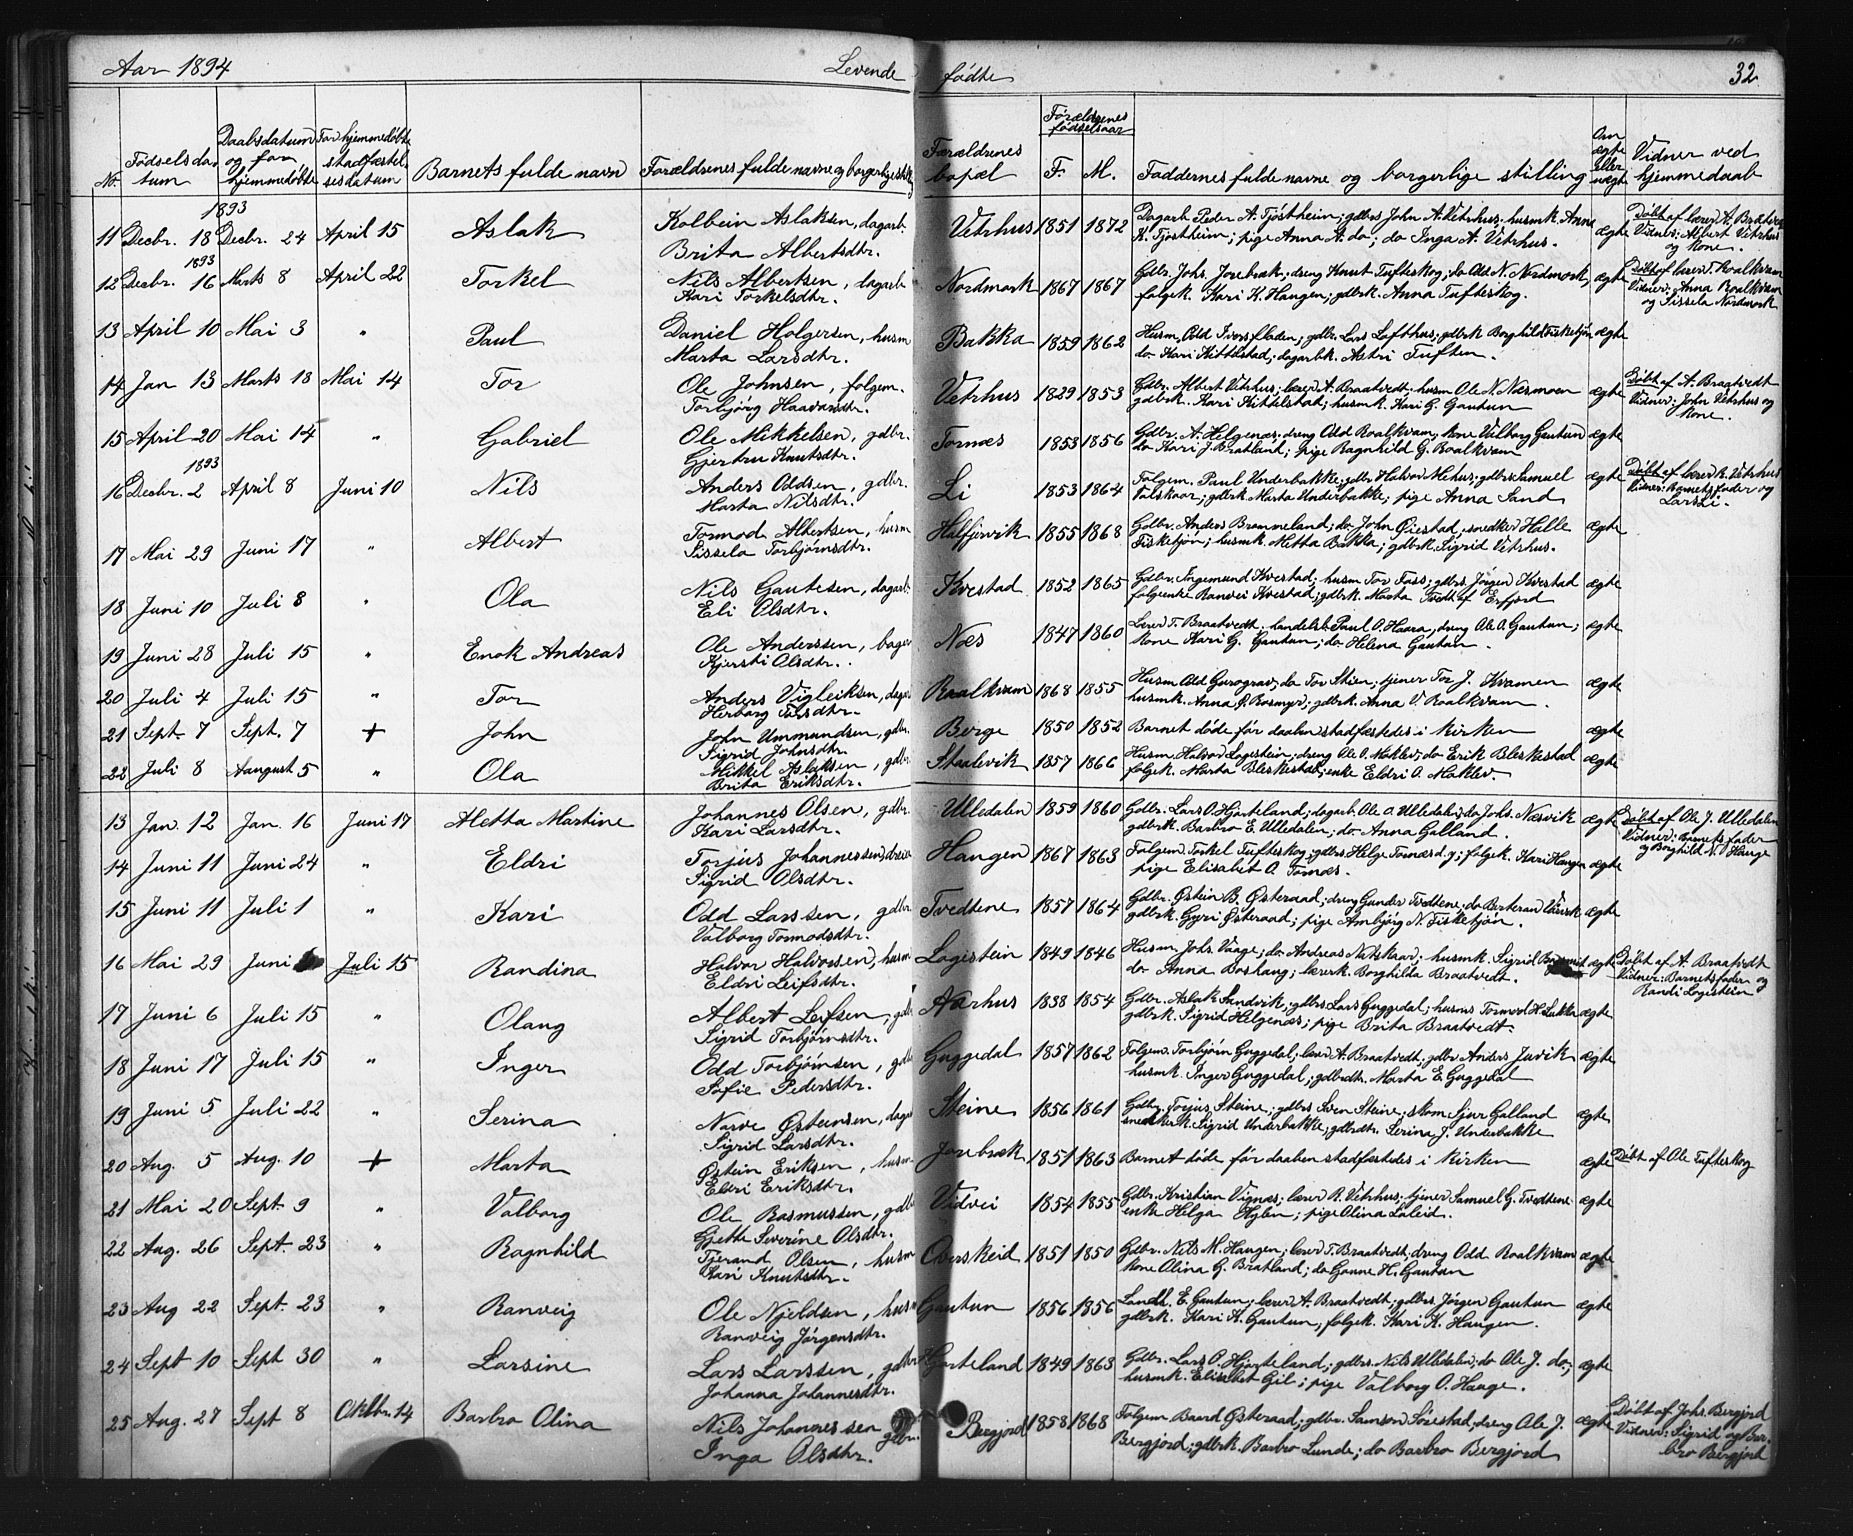 Aar 1894 Levende fødte 32
No. Fødselsdatum Daabsdatum og for hjemmedøbte For hjemmedøbte stadfæstelsesdatum Barnets fulde navn Forældrenes fulde navne og borgerlige Forældrenes bopæl Forældrenes fødselsaar F. M. Faddernes fulde navne og borgerlige stilling Om ægte eller uægte Vidner ved hjemmedaab
1893
11 Decbr. 18 Decbr. 24 April 15 Aslak Kolbein Aslaksen, dagarb. Vetrhus 1851 1872 Dagarb. Peder A. Tjøstheim; gdbrs John A. Vetrhus; husmk. Anna ægte Døbt af lærer A. Braatvedt
Brita Albertsdtr. K. Tjøstheim; pige Anna A. do; do Inga A. Vetrhus. Vidner: Albert Vetrhus
og kone.
1893
12 Decbr. 16 Marts 8 April 22 Torkel Nils Albertsen, dagarb. Nordmork 1867 1867 Gdbr. Johs. Jorebræk; dreng Knut Tufteskog; do Odd N. Nordmork, ægte Døbt af lærer T. Roalkvam
Kari Torkelsdtr. folgek. Kari K. Haugen; gdbrk. Anna Tufteskog. Vidner: Anna Roalkvam
og Sissela Nordmork
13 April 10 Mai 3 " Paul Daniel Holgersen, husm Bakka 1859 1862 Husm. Odd Iversfladen; gdbr. Lars Lofthus; gdbrk Borghild Fisketjøn ægte
Marta Larsdtr. do Kari Kittelstad; dagarbk. Metri Tuften.
14 Jan 13 Marts 18 Mai 14 Tor Ole Johnsen, folgem. Vetrhus 1829 1853 Gdbr. Albert Vetrhus; lærer A. Braatvedt; husm Ole N. Næsmoen ægte Døbt af A. Braatvedt
Torbjørg Haavarsdtr. gdbrk. Kari Kittelstad; husmk. Kari G. Gautun Vidner: John Vetrhus og
kone.
15 April 20 Mai 14 " Gabriel Ole Mikkelsen, gdbr. Tornæs 1853 1856 Gdbr. A. Helgenæs; dreng Odd Roalkvam; kone Valborg Gautun ægte
Gjertru Knutsdtr. do Kari J. Bratland; pige Ragnhild G. Roalkvam
1893
16 Decbr. 2 April 8 Juni 10 Nils Anders Oddsen, gdbr. Li 1853 1864 Folgem. Paul Underbakke; gdbr. Halvor Mehus; gdbrs Samuel ægte Døbt af lærer R. Vetrhus
Marta Nilsdtr. Falskaar; gdbrk. Marta Underbakke; pige Anna Sand Vidner: Barnets fader og
Lars Li.
17 Mai 29 Juni 17 " Albert Tormod Albertsen, husm Halfjervik 1855 1868 Gdbr. Anders Brommeland; do John Øiestad, snedker Halle ægte
Sissela Torbjørnsdtr. Fisketjøn; husmk. Metta Bakka; gdbrk. Sigrid Vetrhus.
18 Juni 10 Juli 8 " Ola Nils Gautesen, dagarb. Kvestad 1852 1865 Gdbr. Ingemund Kvestad; husm Tor Foss; gdbrs. Jørgen Kvestad ægte
Eli Olsdtr. folgeenke Ranvei Kvestad; gdbrk. Marta Tvedt af Erfjord
19 Juni 28 Juli 15 " Enok Andreas Ole Anderssen, bager Næs 1847 1860 Lærer T. Braatvedt; handelsb. Paul O. Haara, dreng Ole O. Gautun; ægte
Kjersti Olsdtr. kone Kari G. Gautun; do Helena Gautun.
20 Juli 4 Juli 15 " Tor Anders Vigleiksen, dagar Roalkvam 1868 1855 Husm Odd Gurograv; do Tor Stien; tjener Tor J. Kvamen ægte
Herborg Torsdtr. husmk. Anna O. Rosmyr; gdbrk. Anna V. Roalkvam.
21 Sept. 7 Sept. 7 + John John Ummundsen, gdbr. Berge 1850 1852 Barnet døde før daaben stadfæstedes i kirken ægte
Sigrid Johnsdtr.
22 Juli 8 August 5 " Ola Mikkel Aslaksen, gdbr. Staalevik 1857 1866 Husm. Halvor Logestein; dreng Ole O. Moklev; do Erik Bleskestad ægte
Brita Eriksdtr. folgek. Marta Bleskestad; enke Eldri O. Moklev.
13 Jan. 12 Jan. 16 Juni 17 Aletta Martine Johannes Olsen, gdbr. Ulledalen 1859 1860 Gdbr. Lars O. Hjorteland; dagarb. Ole O. Ulledalen; do Johs. Næsvik ægte Døbt af Ole J. Ulledalen
Kari Larsdtr. gdbrk. Barbro E. Ulledalen; do Anna Galland. Vidner: Barnets fader
og Borghild N. Hauge
14 Juni 11 Juni 24 " Eldri Torjus Johannessen, dreier Haugen 1867 1863 Folgem. Torkel Tufteskog; gdbrs Helge Tornæs d.y.; folgek. Kari Haugen ægte
Sigrid Olsdtr. pige Elisabet O. Tornæs.
15 Juni 11 Juli 1 " Kari Odd Larssen, gdbr Tvedtene 1857 1864 Gdbr. Østein B. Østeraad; dreng Gunder Tvedtene; do Berteran Vaarvk ægte
Valborg Tormodsdtr. gdbrk. Gyri Østeraad; pige Ambjørg N. Fisketjøn.
16 Mai 29 Juni Juli 15 Randina Halvor Halvorsen, husm Logistein 1849 1846 Husm Johs. Vaage; do Andreas Natskaar; husmk. Sigrid ægte Døbt af A. Braatvedt
Eldri Leifsdtr. do Anna Boshaug; lærerk. Borghilda Braatvedt. Vidner: Barnets fader og
Randi Logestein
17 Juni 6 Juli 15 " Olaug Albert Leifsen, gdbr Aarhus 1838 1854 Gdbr. Aslak Sandvik; gdbrs Lars Guggedal; husms Tormod H. Lukka ægte
Sigrid Torbjørnsdtr. gdbrk. Sigrid Helgenæs; pige Brita Braatvedt.
18 Juni 17 Juli 15 " Inger Odd Torbjørnsen, gdb Guggedal 1857 1862 Folgem. Torbjørn Guggedal; lærer A. Braatvedt; gdbr Anders Juvik ægte
Sofie Pedersdtr. husmk. Inger Guggedal; gdbrdtr. Marta E. Guggedal
19 Juni 5 Juli 22 " Serina Narve Østensen, dagar Steine 1856 1861 Gdbr. Torjus Steine; gdbrs Sven Steine; skom Sjur Galland ægte
Sigrid Larsdtr. snedkerk. Sigrid Underbakke; gdbrdtr. Serina J. Underbakke
20 Aug. 5 Aug. 10 + Marta Østein Eriksen, husm Jorebræk 1851 1863 Barnet døde før daaben stadfæstedes i kirken ægte Døbt af Ole Tufteskog
Eldri Eriksdtr.
21 Mai 20 Sept 9 " Valborg Ole Rasmussen, gdb Vidvei 1854 1855 Gdbr. Kristian Vignæs; lærer R. Vetrhus; tjener Samuel G. Tvedtene ægte
Gjette Severine Olsdtr. enke Helga Hylen; pige Olina Laleid.
22 Aug. 26 Sept. 23 " Ragnhild Tjerand Olsen, husm Overskeid 1851 1850 Gdbr. Nils M. Haugen; lærer T. Braatvedt; dreng Odd Roalkvam ægte
Kari Knutsdtr. kone Olina G. Bratland; do Gunne H. Gautun
23 Aug 22 Sept. 23 " Ranveig Ole Njeldsen, husm Gautun 1856 1856 Landh. E. Gautun; lærer A. Braatvedt; gdbrs Jørgen Gautun ægte
Ranveig Jørgensdtr. gdbrk. Kari K. Gautun; folgek. Kari K. Haugen.
24 Sept 10 Sept 30 " Larsine Lars Larssen, gdbr Hjorteland 1849 1863 Gdbr. Lars O. Hjorteland; gdbrs. Nils Ulledalen; do Ole J. do; ægte
Johanna Johannesdtr. husmk. Elisabet Gil; pige Valborg O. Hauge.
25 Aug. 27 Sept 8 Oktbr. 14 Barbro Olina Nils Johannessen gdbr. Bergjord 1858 1868 Folgem. Baard Østeraad; gdbr. Samson Sørestad; dreng Ole J. ægte Døbt af Johs. Bergjord
Inga Olsdtr. Bergjord; gdbrk. Barbro Lunde; do Barbro Bergjord Vidner: Sigrid og Bar-
bro Bergjord